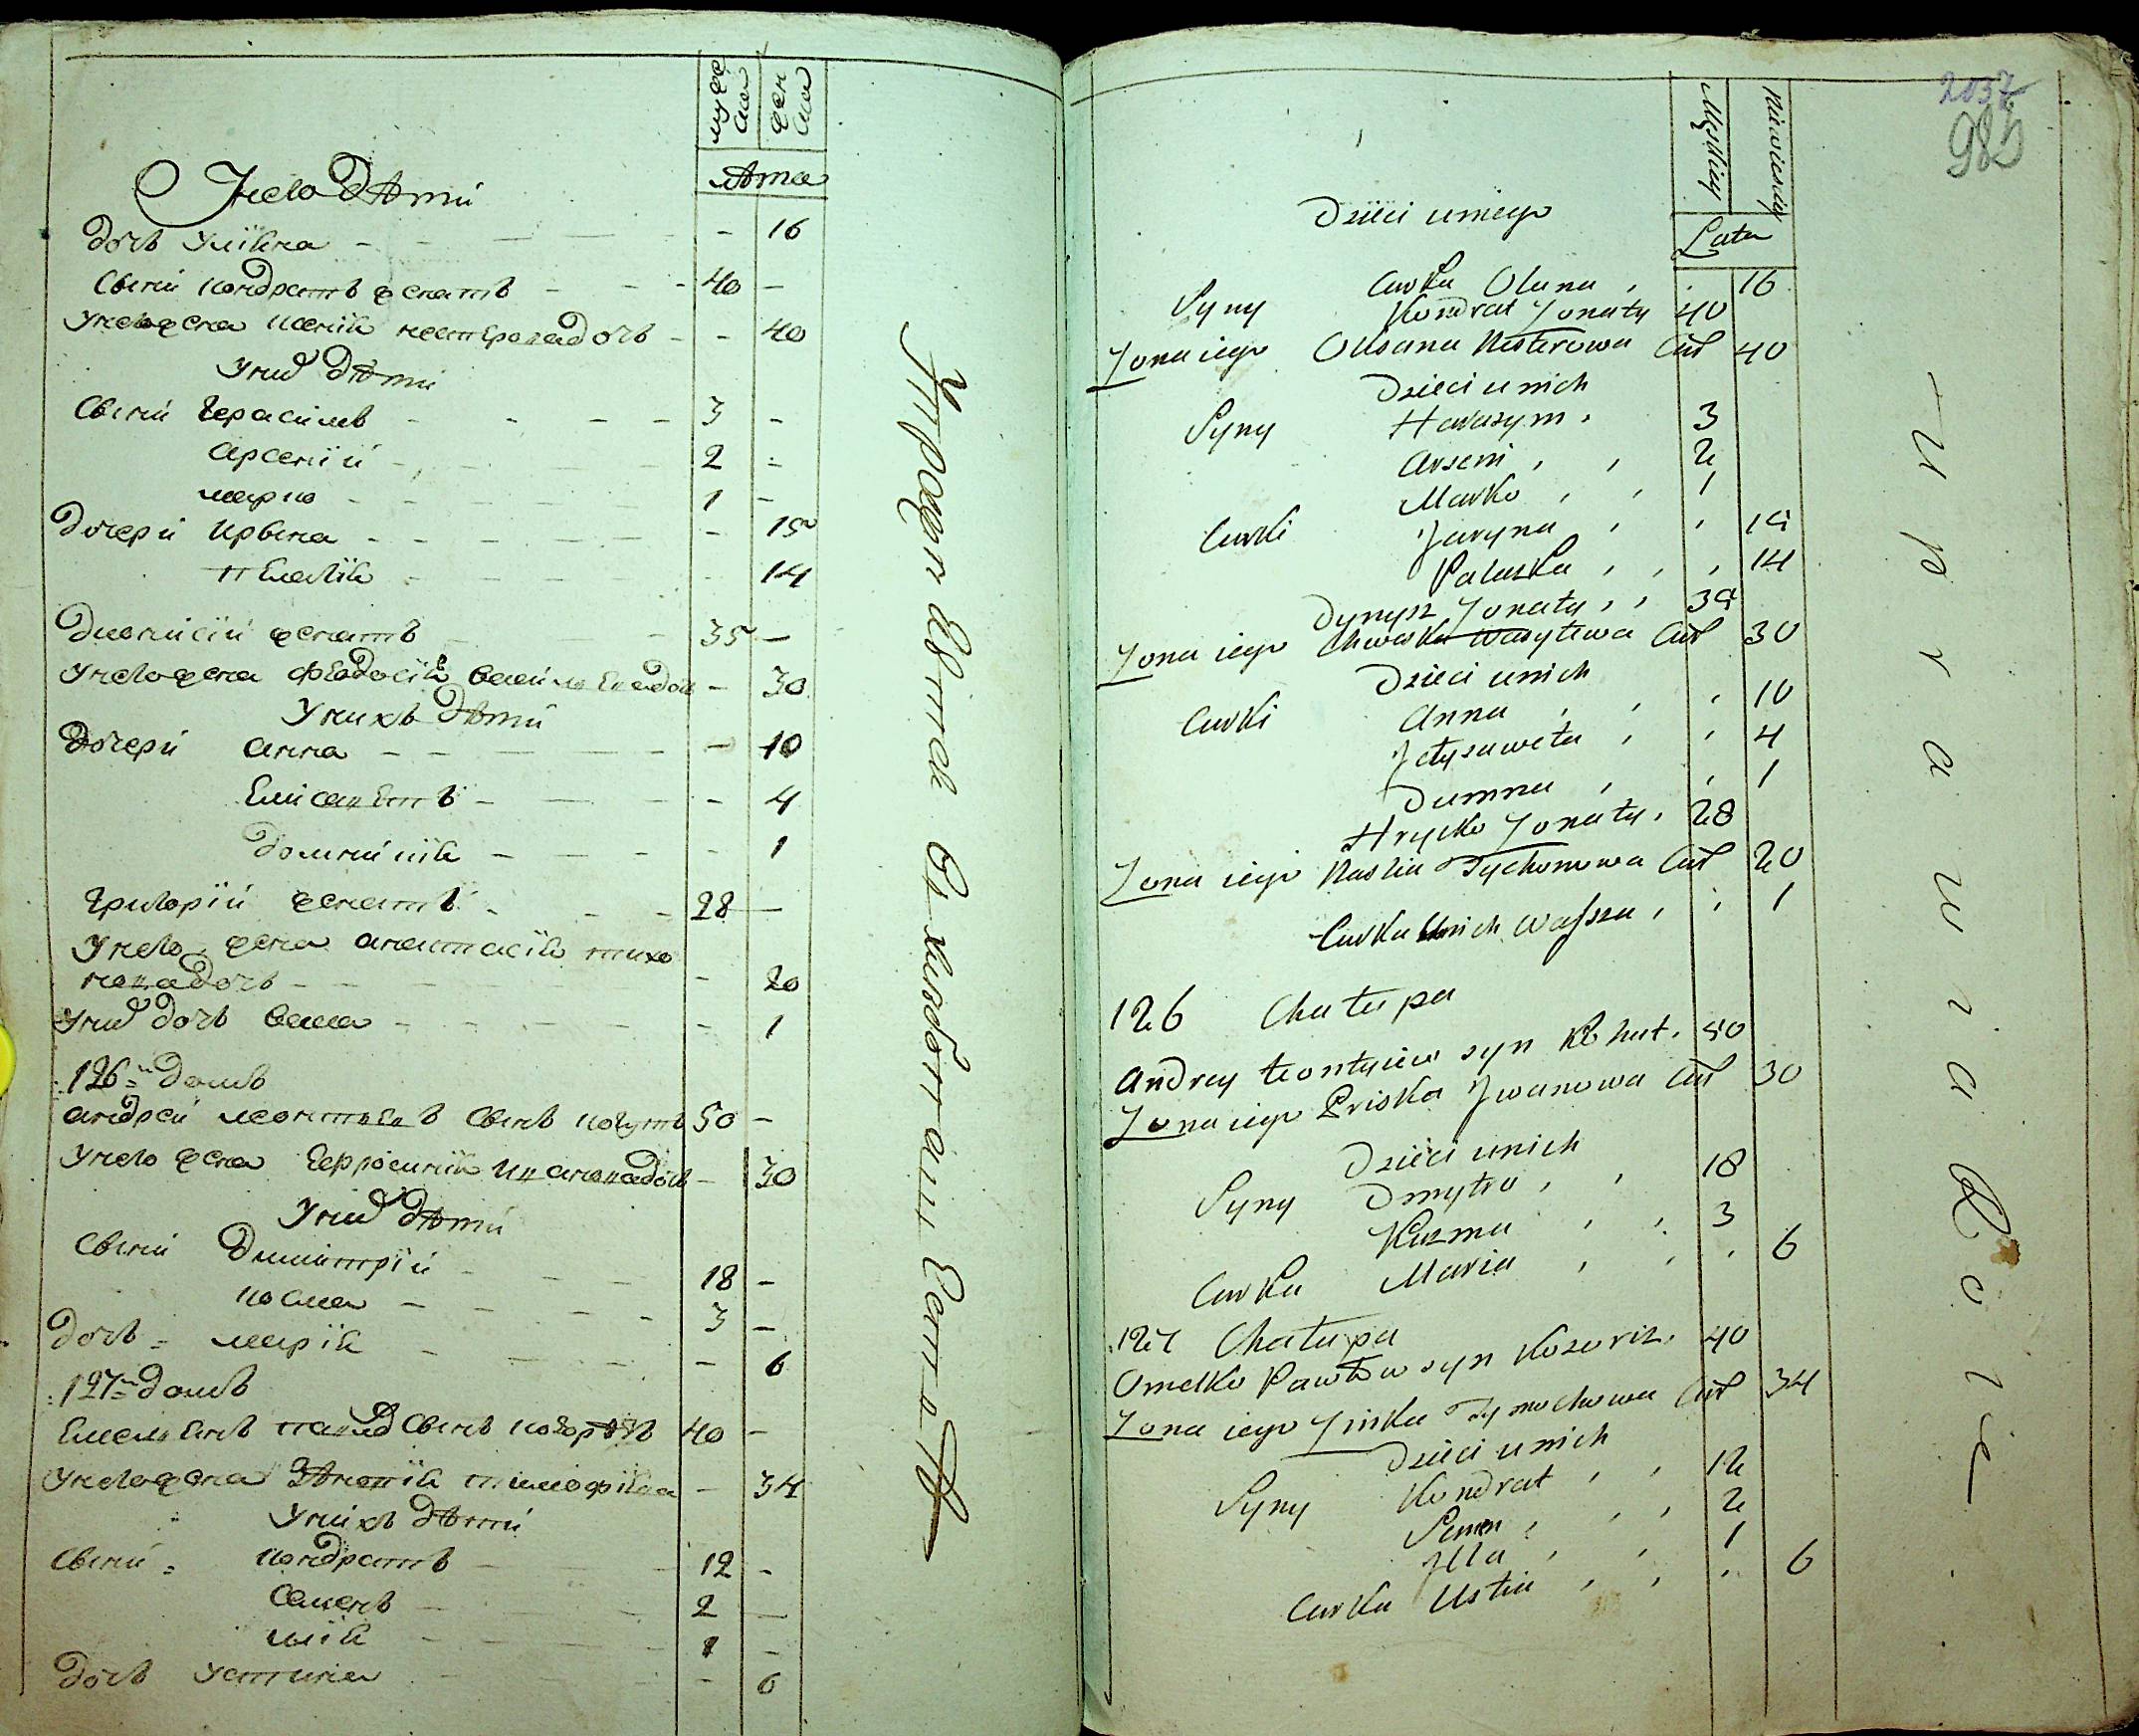 мужеска
женска
лѣта
У него дѣти
дочь Улiяна - - 16
сыны Кондратъ Женатъ - - 40 -
У него жена Ксенiя Нестерова дочь - - 40
У них дѣти
сыны Герасимъ - 3 -
Арсенiй - 2 -
Марко - 1 -
дочери Ирына - - 15
Пелагiя - - 14
Дионисiй женатъ 35 -
У него жена Феодосiя Василева дочь - 30
У нихъ дѣти
дочери Анна - - 10
Елисаветъ - - 4
Домникiя - - 1
Григорiй женатъ - 28 -
У него жена Анастасiя Тихо
нова дочь - - 20
У них дочь Васса - - 1
126й домъ
Андрей Леонтьевъ сынъ Когутъ 50 -
У него жена Евфросинiя Иванова дочь - 30
У них дѣти
сыны Димитрiй - 18 -
Косма - 3 -
дочь Марiя - - 6
127й домъ
Емельянъ Павловъ сынъ Козорѣзъ 40 -
У него жена Зѣновiя Тимофiева - 34
У нихъ дѣти
сыны Кондратъ - 12 -
Семенъ - 2 -
Илiя - 1 -
дочь Устина - - 6
2037
982
Męskiey
Niewieskiey
Lata
Dzieci u niego
Curka Olana , . 16
Syny Kondrat Żonaty 40
Żona iego Oksana Nesterowa Cur 40
Dzieci u nich
Syny Harasym . 3
Arseni , , 2
Marko , , 1
Curki Jaryna , , 15
Palazka , , , 14
Dynysz Żonaty , , 35
Żona iego Chweska Wasylewa Cur 30
Dzieci u nich
Curki Anna , , , 10
Jełysaweta , , 4
Dumna , , 1
Hrycko Żonaty , 28
Żona iego Nastia Tychonowa Cur 20
Curka u nich Wassa , , 1
126 Chałupa
Andrey Leontyiew syn Kohut . 50
Żona iego Priska Jwanowa Cur 30
Dzieci u nich
Syny Dmytro , , 18
Kuzma , , 3
Curka Maria , , , 6
127 Chałupa
Omelko Pawłow syn Kozoriz . 40
Żona iego Zinka Tymochowa Cur 34
Dzieci u nich
Syny Kondrat , , 12
Semen , , , 2
Jlla , , 1
Curka Ustia , , . 6